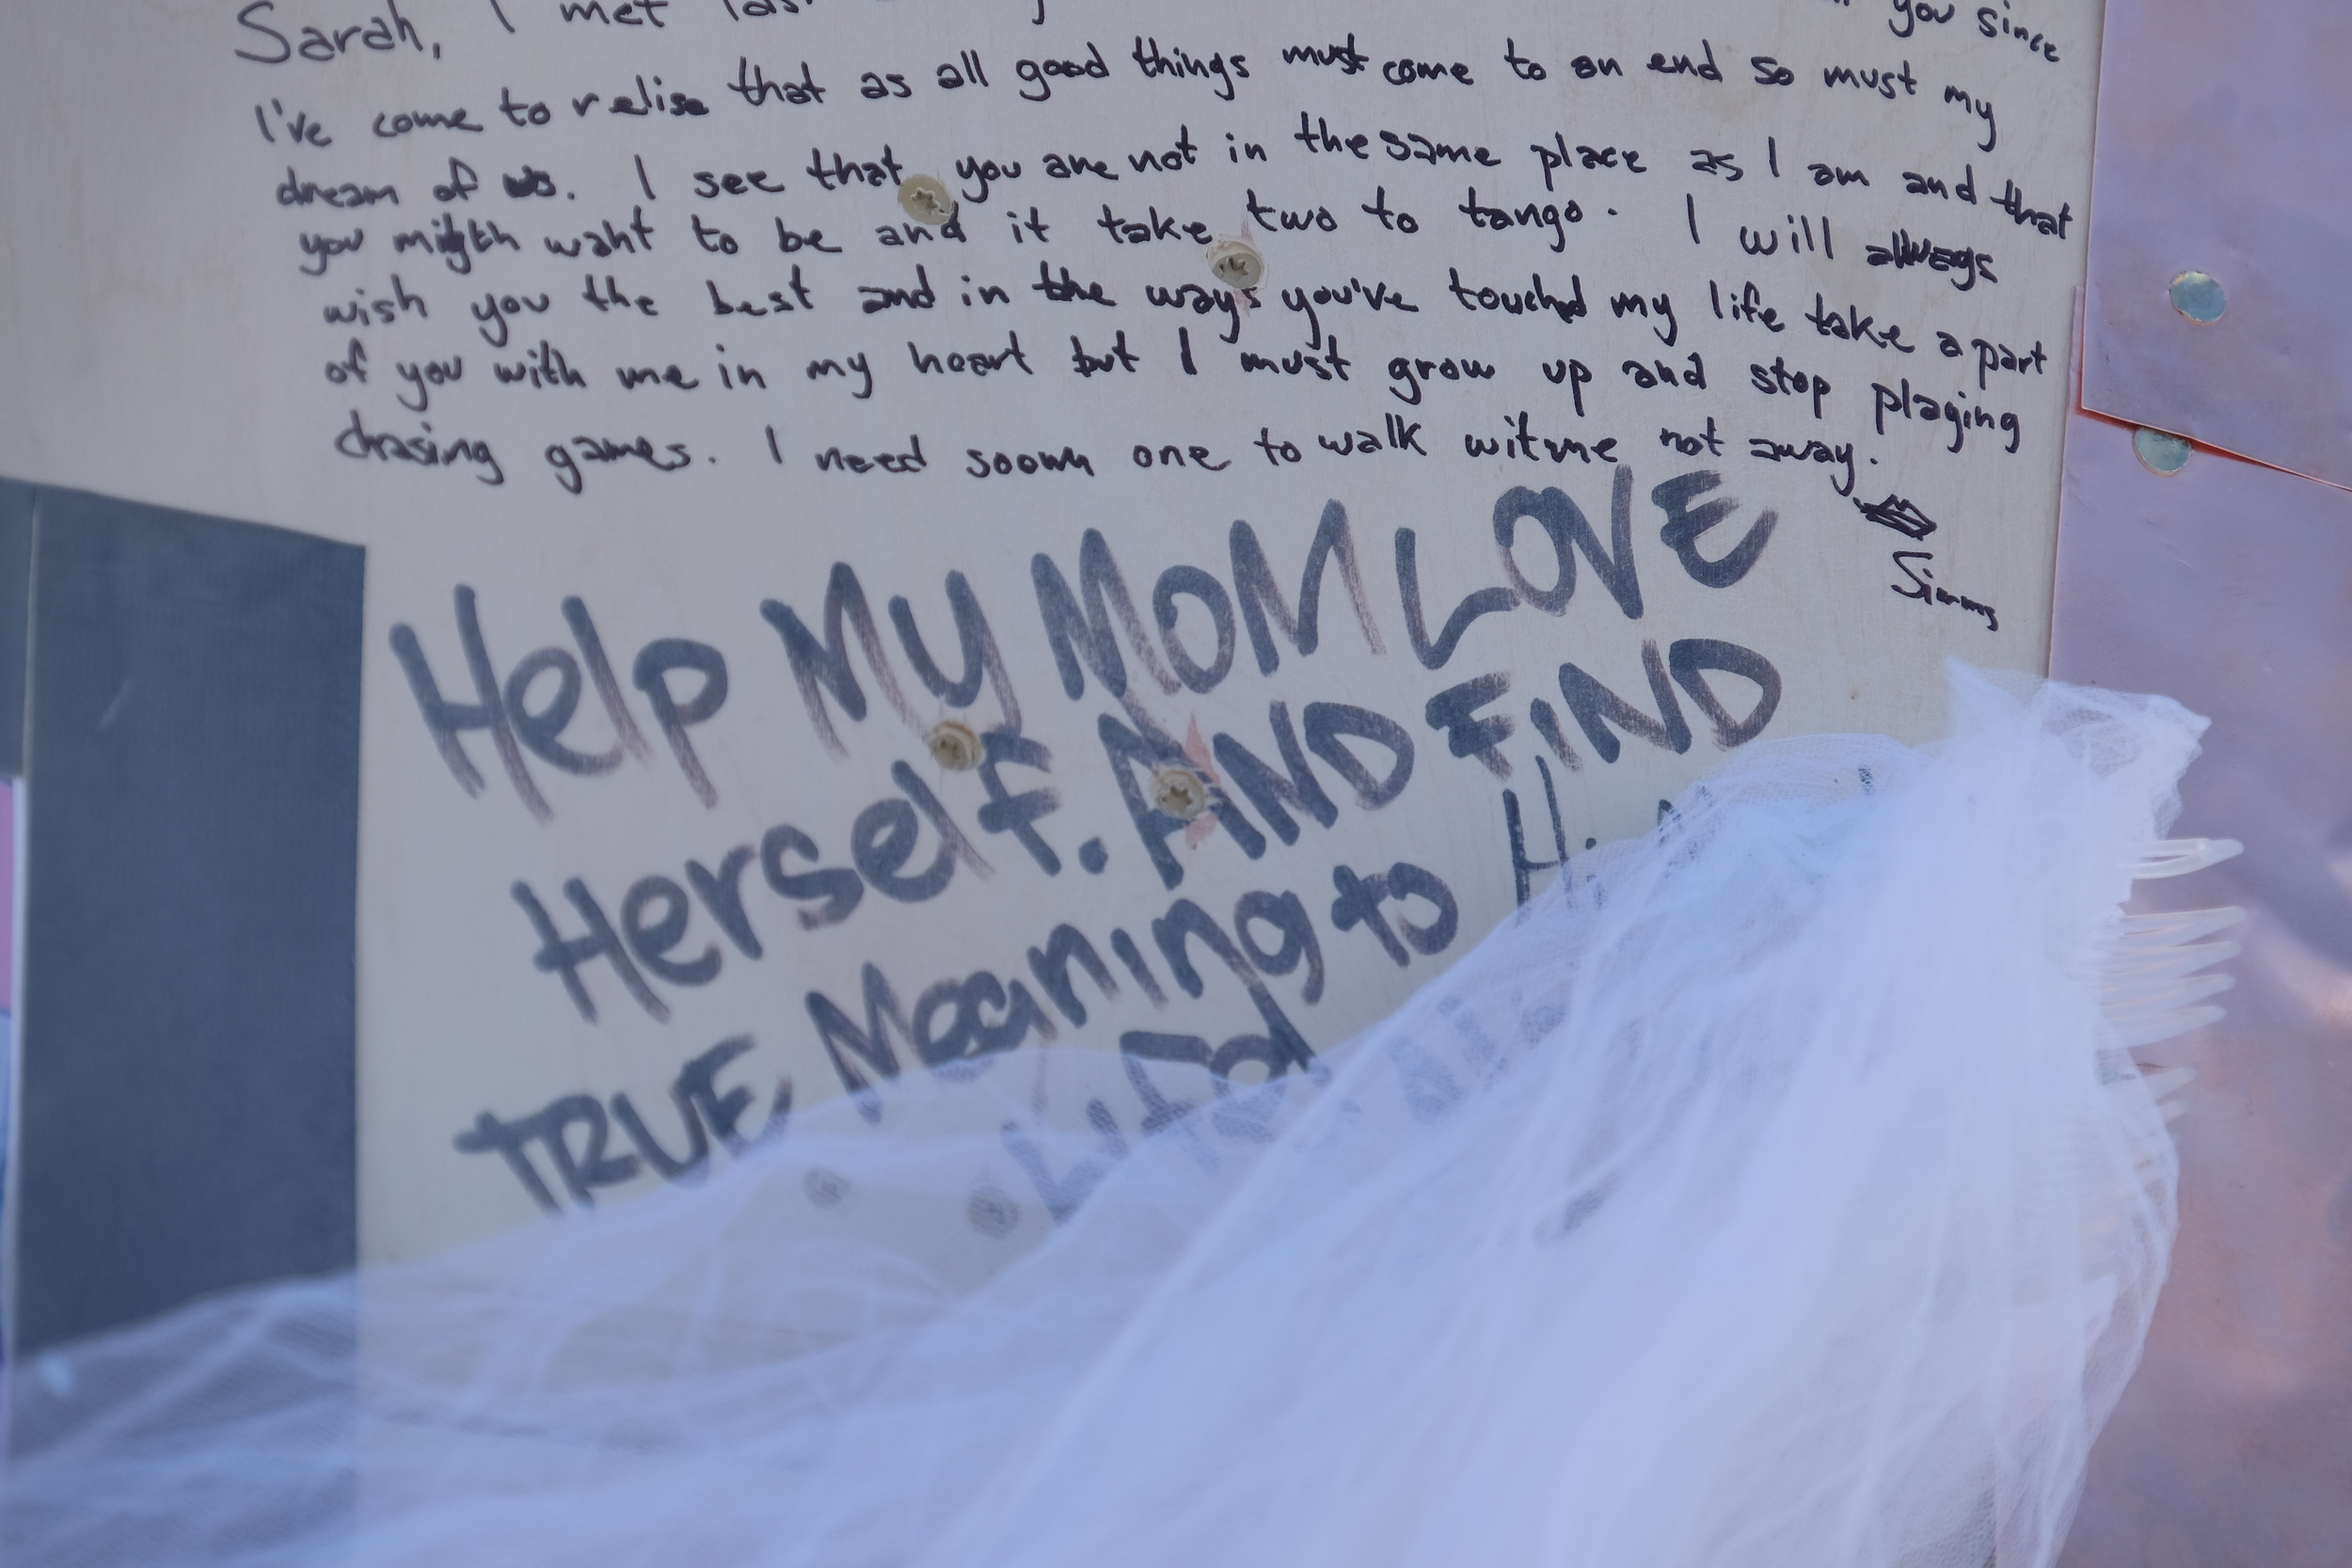 Sarah, I met
you since
I've come to relise that as all good things must come to an end so must my
dream of us. I see that you are not in the same place as I am and that
you migth waht to be and it take two to tango. I will always
wish you the best and in the ways you've touched my life take a part
of you with me in my heart but I must grow up and stop playing
chasing games. I need one to walk not away.
Simms
Help MY MOM LOVE
Herself. AND FIND
TRUE Meaning to